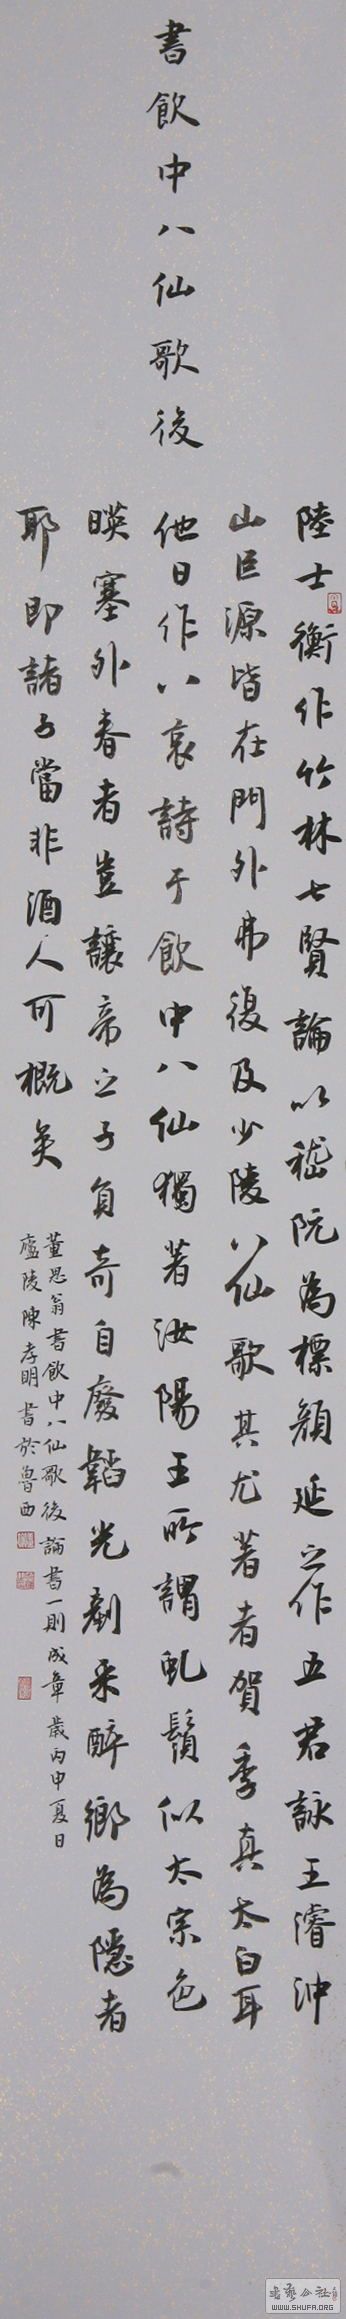 書飲中八仙歌後
陸士衡作竹林七賢論以嵇阮為標顔延之作五君詠王濬沖
山巨源皆在門外弗復及少陵八仙歌其尤著者賀季真太白耳
他日作八哀詩于飲中八仙獨著汝陽王所謂虬鬚似太宗色
暎塞外春者豈讓帝之子負奇自廢韜光剷采醉鄉為隱者
耶即諸子當非酒人可概矣
董思翁書飲中八仙歌後論書一則成章歲丙申夏日
廬陵陳孝明書於魯西
WWW.SHUFA.ORG